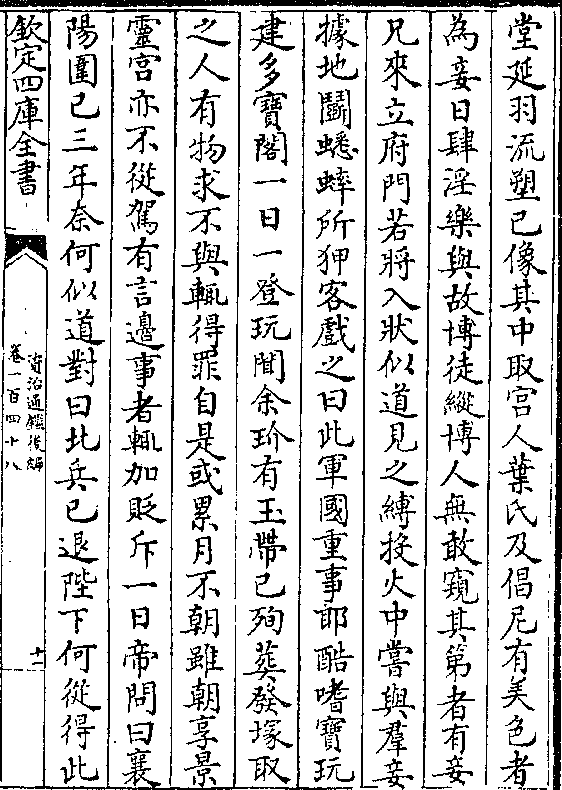 堂延羽流塑已像其中取宫人葉氏及倡尼有美色者
為妾日肆淫樂與故博徒縱博人無敢窺其第者有妾
兄來立府門若將入狀似道見之縛投火中嘗與羣妾
據地鬬蟋蟀所狎客戲之曰此軍國重事郎酷嗜寶玩
建多寶閣一日一登玩聞余玠有玉帶已殉葬發塚取
之人有物求不與輒得罪自是或累月不朝雖朝享景
靈宫亦不從駕有言邊事者輒加貶斥一日帝問曰襄
陽圍已三年奈何似道對曰北兵已退陛下何從得此
欽定四庫全書
資治通鑑後編
卷一百四十八
十二